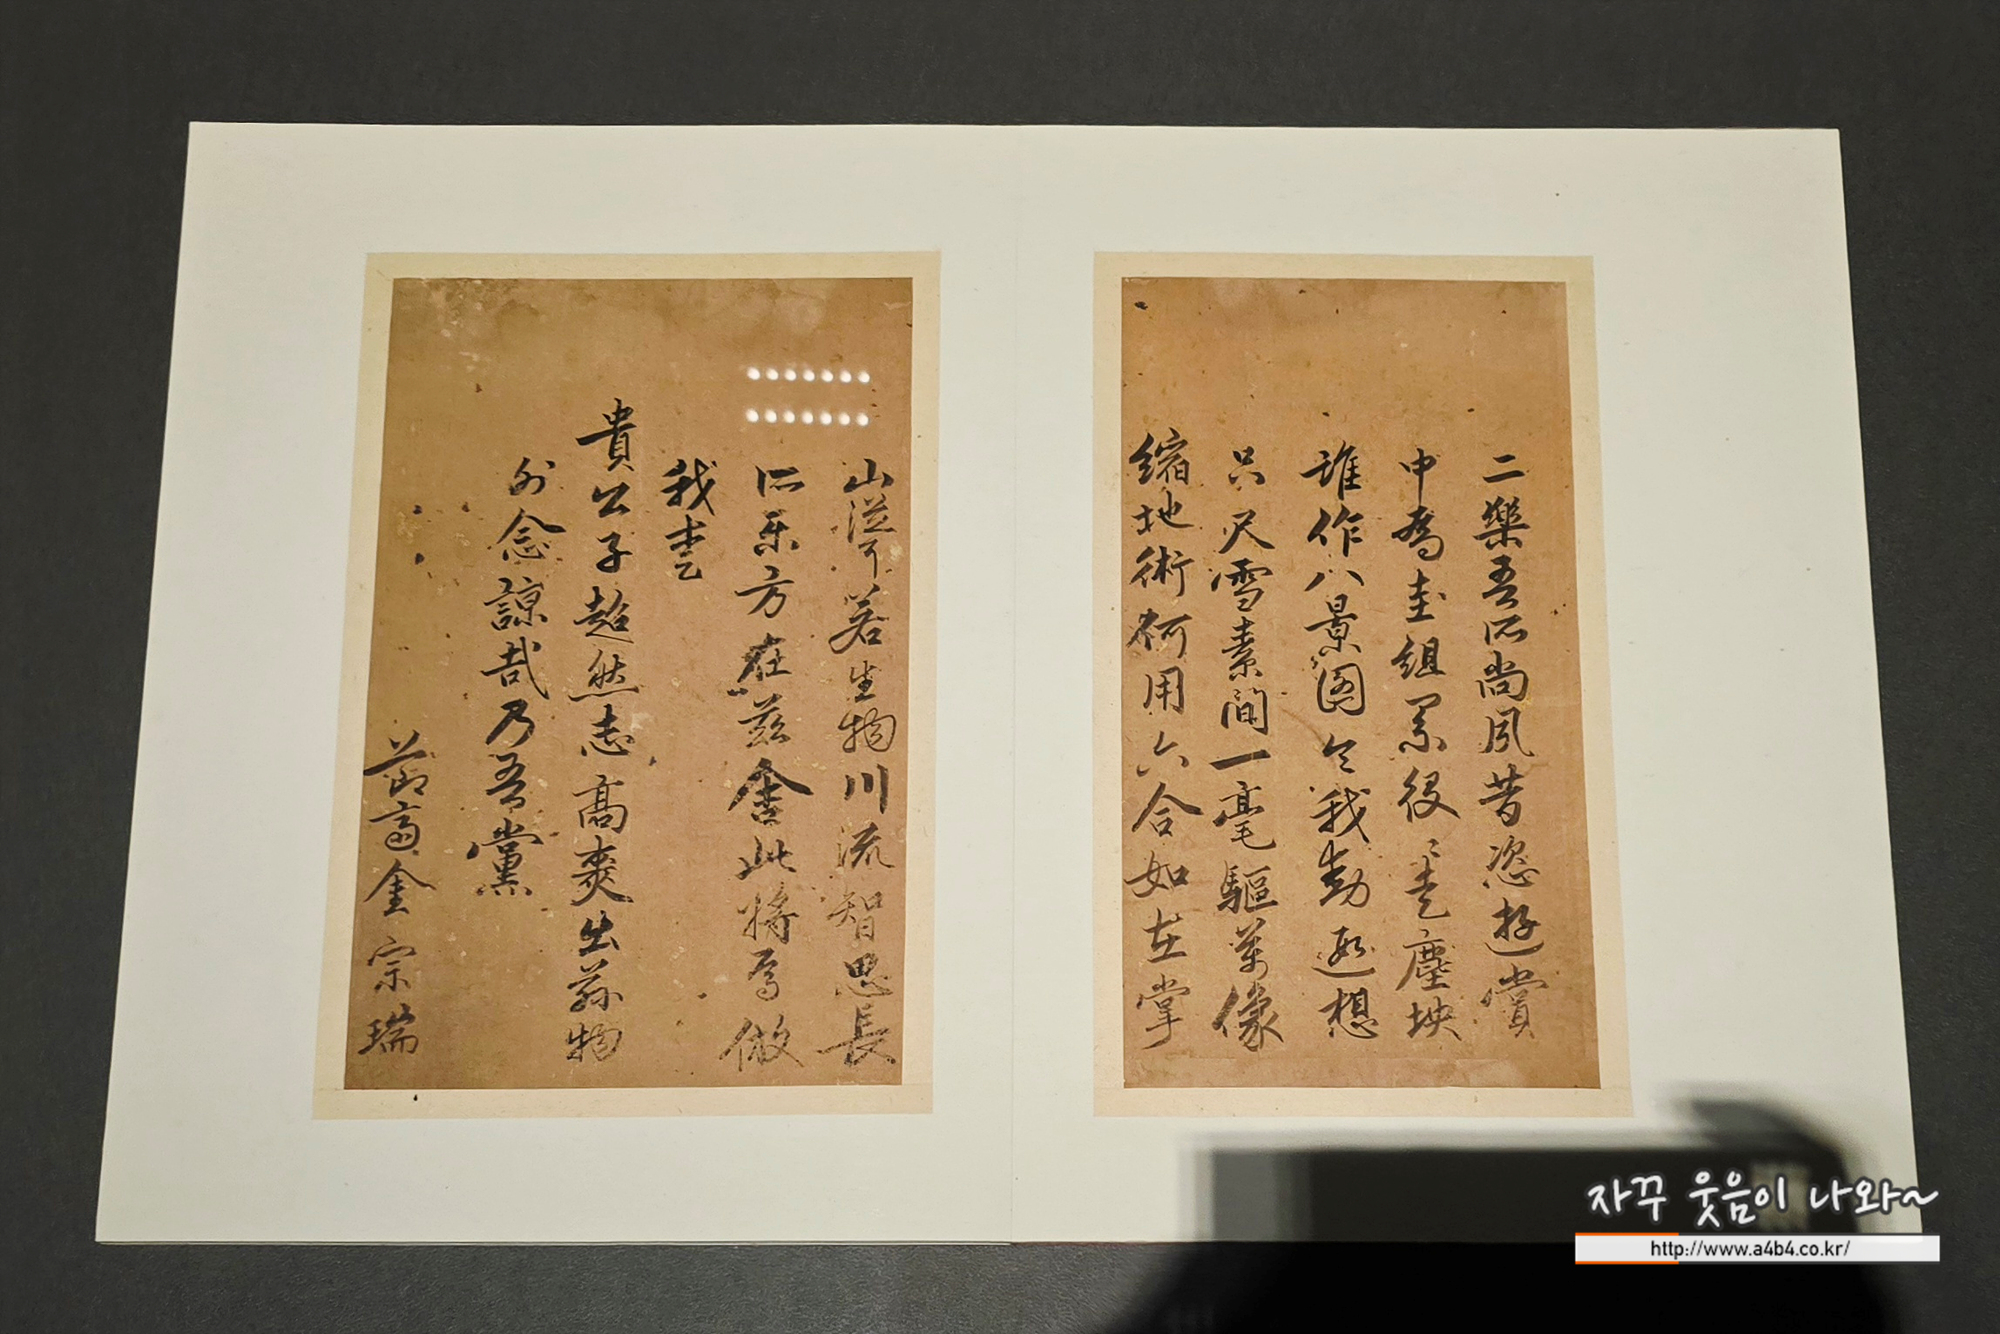 二樂吾所尚夙昔恣遊賞
中爲圭組累役〻走塵坱
誰作八景圖令我動遐想
只尺雪素間一毫驅萬像
縮地術何用六合如在掌
山澤若生物川流智思長
所樂方在玆舍此將焉倣
我書
貴公子超然志高爽出荪物
外念諒哉乃吾黨
節齋金宗瑞
자꾸 웃음이 나와~
http://www.a4b4.co.kr/